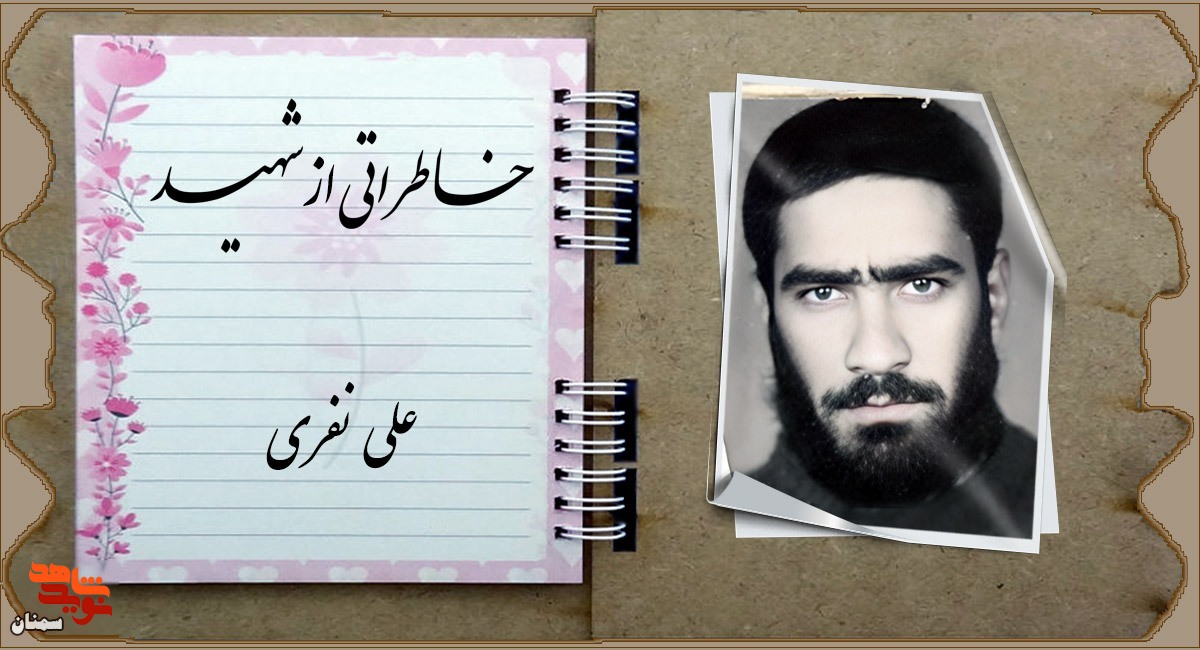 خاطراتی از شهید
علی نفری
نوید شاهد
سمنان